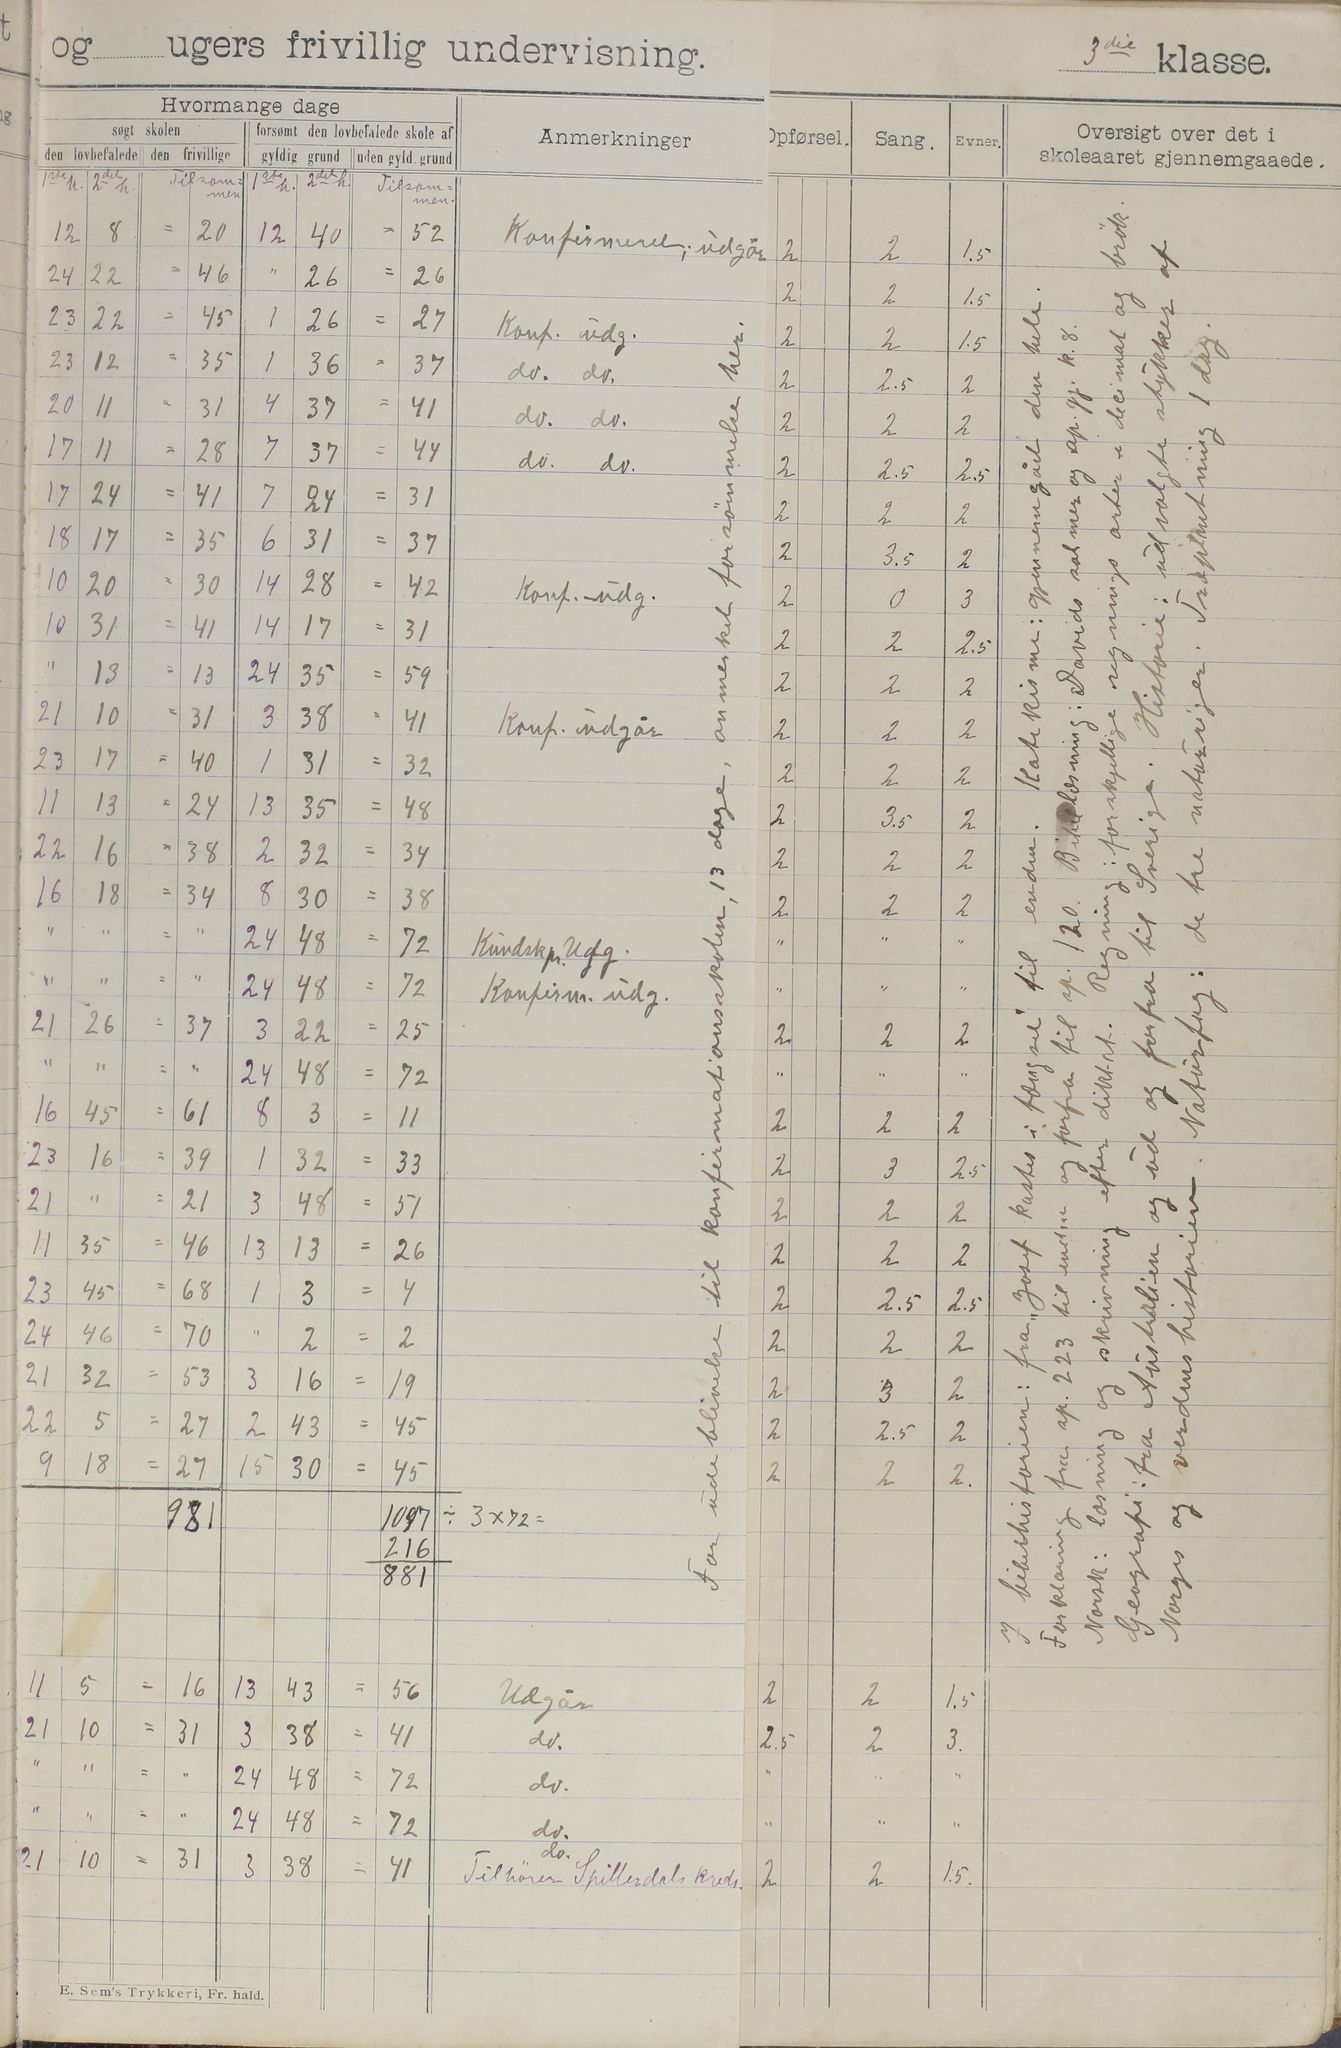 og ugers frivillig undervisning.
3die klasse.
Hvormange dage
søgt skolen
forsømt den lovbefalede skole af
den lovbefalede
den frivillige
gyldig grund
uden gyld. grund
Anmerkninger
Opførsel.
Sang.
Evner.
Oversigt over det i
skoleaaret gjennemgaaede.
1ste h. 2det h. Tilsammen 1ste h. 2det h. Tilsammen.
12 8 = 20 12 40 = 52 Konfirmeret; udgår 2 2 1.5
24 22 = 46 " 26 = 26 2 2 1.5
23 22 = 45 1 26 = 27 Konf. udg. 2 2 1.5
23 12 = 35 1 36 = 37 do. do. 2 2.5 2
20 11 = 31 4 37 = 41 do. do. 2 2 2
17 11 = 28 7 37 = 44 do. do. 2 2.5 2.5
17 24 = 41 7 24 = 31 2 2 2
18 17 = 35 6 31 = 37 2 3.5 2
10 20 = 30 14 28 = 42 Konf. udg. 2 0 3
10 31 = 41 14 17 = 31 2 2 2.5
" 13 = 13 24 35 = 59 2 2 2
21 10 = 31 3 38 = 41 Konf. udgår 2 2 2
23 17 = 40 1 31 = 32 2 2 2
11 13 = 24 13 35 = 48 2 3.5 2
22 16 = 38 2 32 = 34 2 2 2
16 18 = 34 8 30 = 38 2 2 2
" " = " 24 48 = 72 Kundskpr. Udg. " " "
" " = " 24 48 = 72 Konfirm. udg. " " "
21 26 = 37 3 22 = 25 2 2 2
" " = " 24 48 = 72 " " "
16 45 = 61 8 3 = 11 2 2 2
23 16 = 39 1 32 = 33 2 3 2.5
21 " = 21 3 48 = 51 2 2 2
11 35 = 46 13 13 = 26 2 2 2
23 45 = 68 1 3 = 4 2 2.5 2.5
24 46 = 70 " 2 = 2 2 2 2
21 32 = 53 3 16 = 19 2 3 2
22 5 = 27 2 43 = 45 2 2.5 2
9 18 = 27 15 30 = 45 2 2 2.
981 1097 ÷ 3 x 72 =
216
881
11 5 = 16 13 43 = 56 Udgår 2 2 1.5
21 10 = 31 3 38 = 41 do. 2.5 2 3.
" " = " 24 48 = 72 do. " " "
" " = " 24 48 = 72 do. " " "
do.
21 10 = 31 3 38 = 41 Tilhører Spillerdals kreds. 2 2 1.5.
For udeblivelse til konfirmationsskolen, 13 dage, anmerket forsømmelse her.
I bibelhistorien: fra „Josef kastes i fængsel" til enden. Katekisme: gjennemgået den hele.
Forklaring fra sp. 223 til enden og forfra til sp. 120. Bibellæsning: Davids salmer og ap. gj. k. 8.
Norsk: læsning og skrivning efter diktat. Regning: forskjellige regnings arter i decimal og brøk.
Geografi: fra Australien og ud og forfra til Sverige. Historie: udvalgte stykker af
Norges og verdenshistorien. Naturfag: de tre naturriger. Træplantning 1 dag.
E. Sem's Trykkeri, Fr. hald.